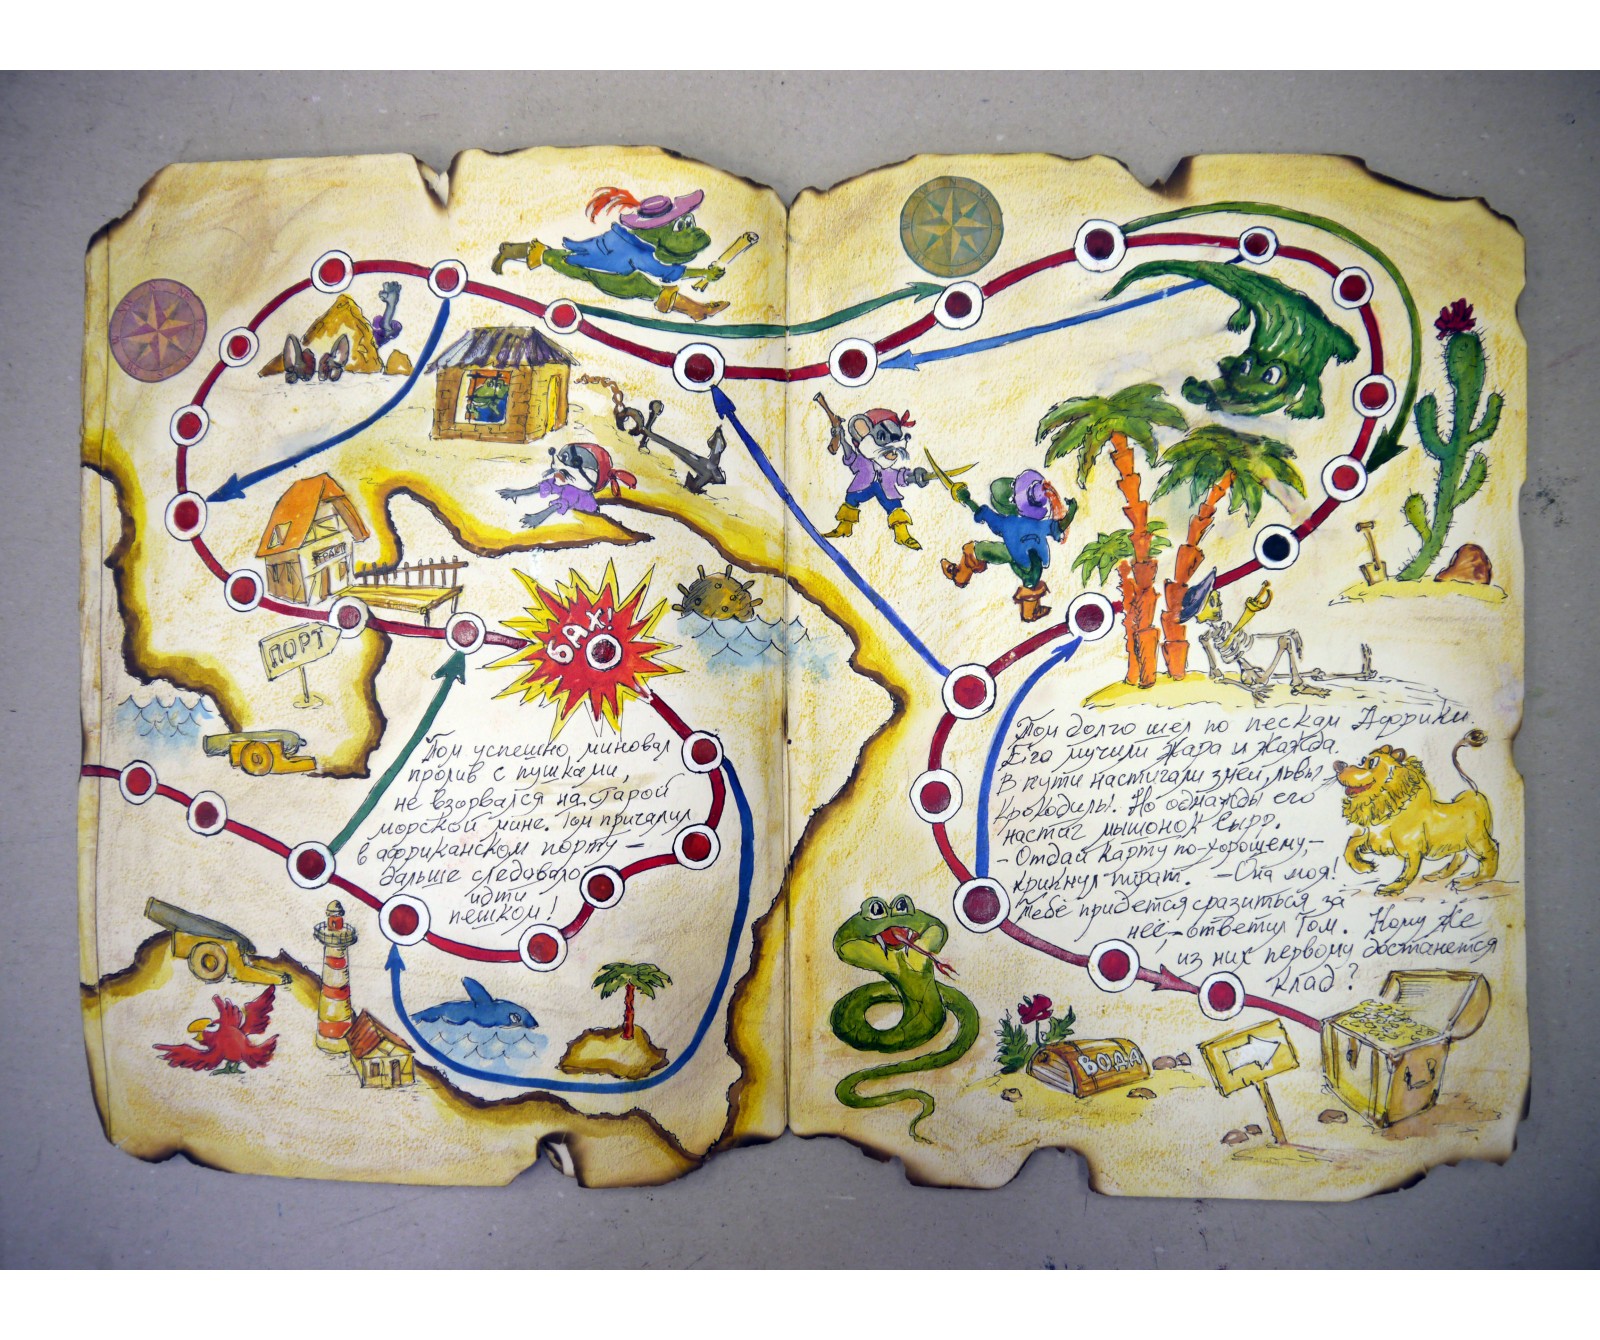 ТРАКТ
БАХ!
ПОРТ
Том успешно миновал
пролив с пушками,
не взорвался на старой
морской мине. Том причалил
в африканском порту –
дальше следовало
идти
пешком!
Том долго шел по пескам Африки.
Его мучили жара и жажда.
В пути настигали змеи, львы
крокодилы. Но однажды его
настиг мышонок Сырр.
– Отдай карту по-хорошему, –
крикнул пират. – Она моя!
Тебе придется сразиться за
неё, – ответил Том. Кому же
из них первому достанется
клад?
ВОДА